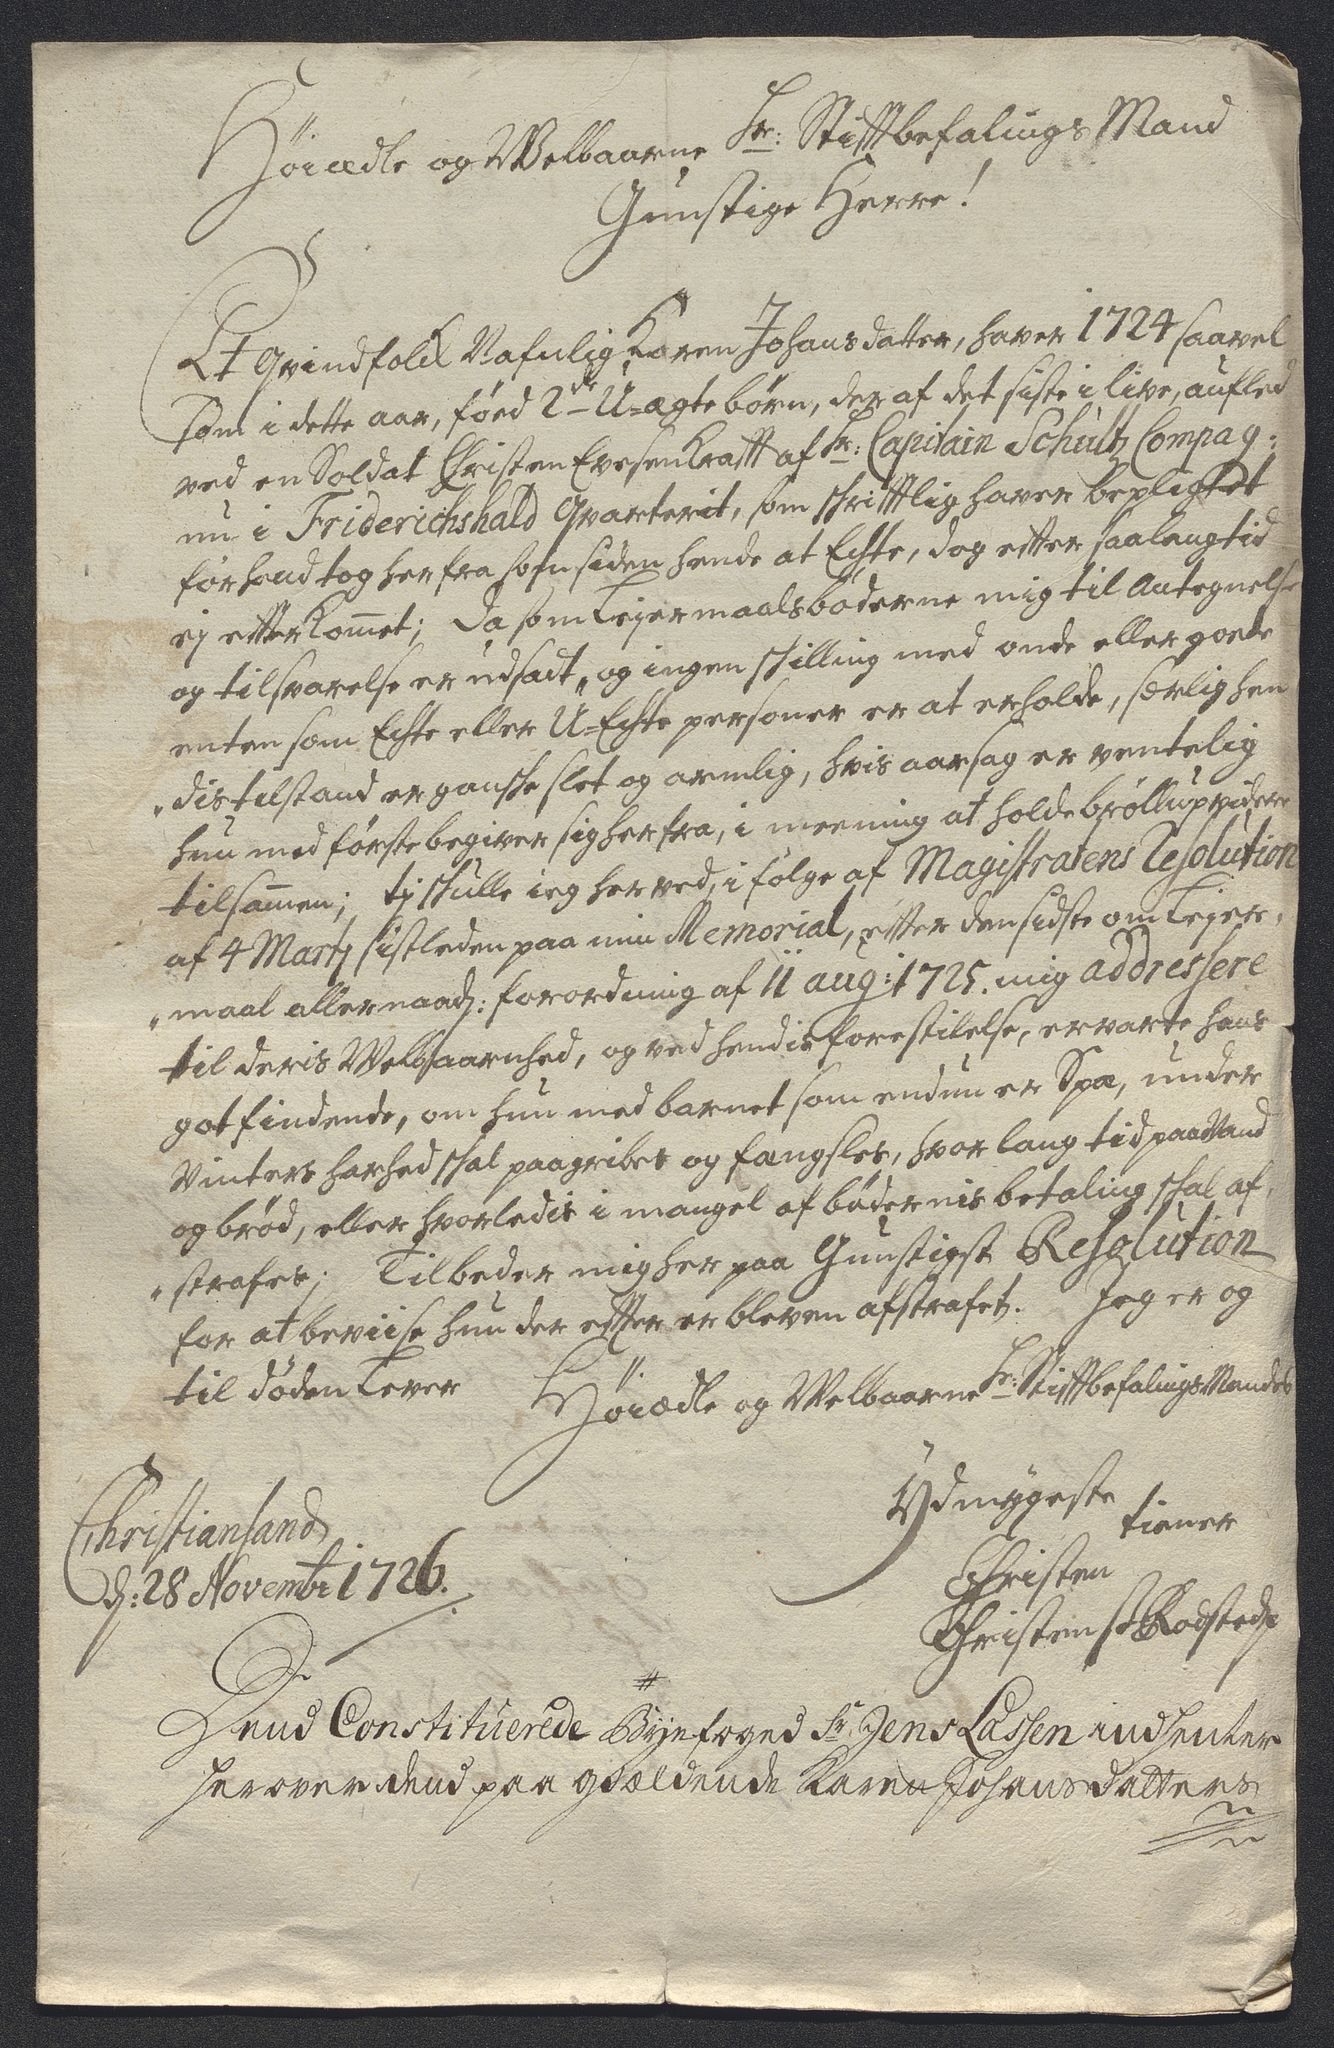 Höiædle og Welbaarne Hr: Stiftbefalings Mand
Gunstige Herre!
Et qvindfolch Nafnlig Karen Johansdatter, haver 1724 saavel
som i dette aar, föed 2de U-ægte börn, der af det siste i live, aufled
ved en Soldat Christen Evesen Krafft af Hr: Capitain Schultz Compag:
nu i Friderichshald qvarterit, som schrifftlig haver bepligtet
för hand tog her fra som siden hende at Echte, dog efter saa lang tid
ej efterkom̅et; Da som Leyermaals böderne mig til Antegnelse
og tilsvarelse er udsadt, og ingen schilling med onde eller goede
enten som Echte eller U-Echte personer er at erholde, særlig hen
„dis tilstand er gansche slet og armlig, hvis aarsag er ventelig
hun med förste begiver sig her fra, i meening at holde bröllup videre
tilsam̅en; ty schulle ieg her ved, i fölge af Magistratens Resolution
af 4 Martj sistleden paa min Memorial, efter den sidste om Leyer,
„maal allernaadj: forordning af 11 aug: 1725. mig addressere
til deris Welbaarnhed, og ved hendis forestilelse, ervarte hans
gotfindende, om hun med barnet som endnu er Spæ, under
Vinters harhed schal paagribes og fængsles, hvor lang tid paa Vand
og bröd, eller hvorledis i mangel af bödernis betaling schal af,
„strafes; Tilbeder mig her paa Gunstigst Resolution
for at beviise hun der efter er bleven afstrafet. Jeg er og
til döden Lever Höiædle og Welbaarne Hr: Stiftbefalings Mandes
Ydmygeste
tiener
Christiansand
d: 28 Novembr 1726.
Christen
Christens: Rodsted
Dend Constituerede Byefoged Sr Jens Lassen indhenter
herover dend paa gieldende Karen Johans datters